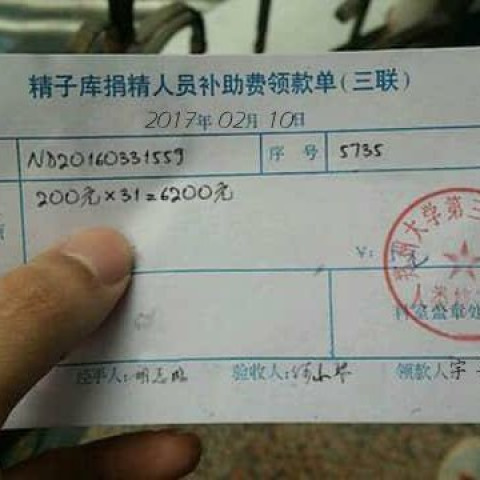 精子库捐精人员补助费领款单(三联)
2017年02月10日
ND20160331559 序 号 5735
200元×31=6200元
¥: 元
州大学第三
人类精
科室盖章处
经手人: 验收人: 领款人